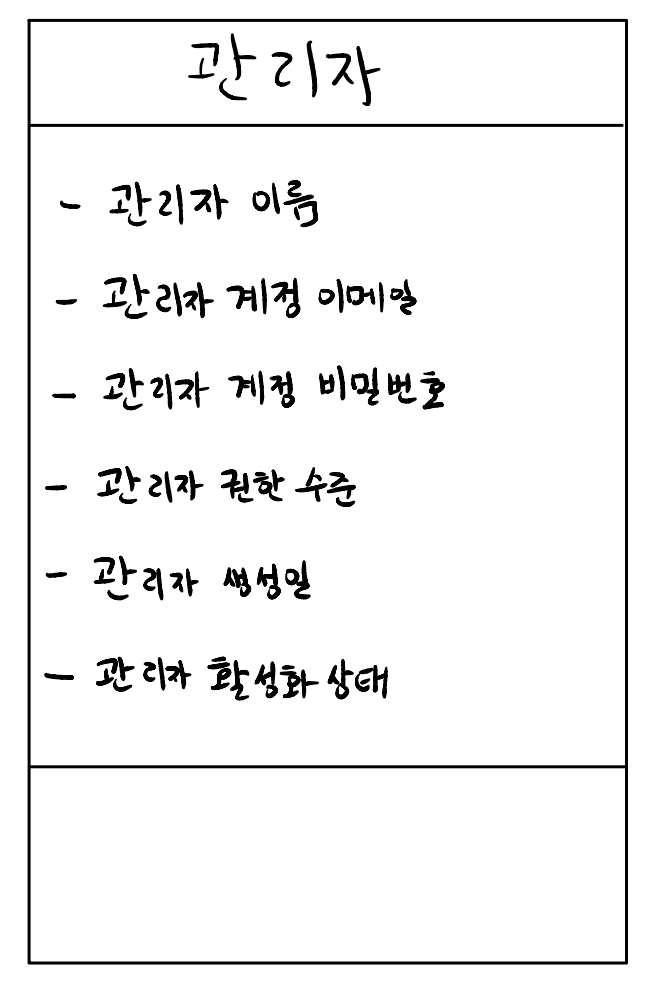 관리자
- 관리자 이름
- 관리자 계정 이메일
- 관리자 계정 비밀번호
- 관리자 권한 수준
- 관리자 생성일
- 관리자 활성화 상태